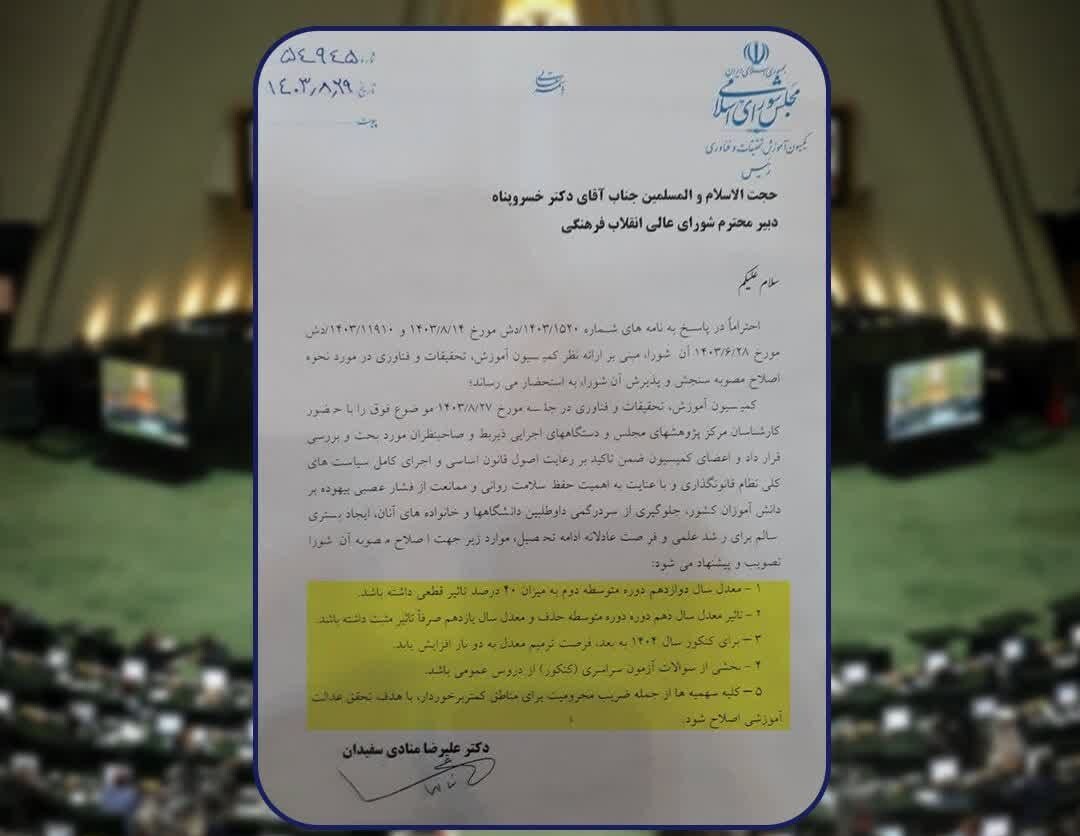 جمهوری اسلامی ایران
مجلس شورای اسلامی
کمیسیون آموزش تحقیقات و فناوری
رئیس
۵۴۹۴۵
تاریخ ۱۴۰۳/۸/۲۹
پیوست
حجت الاسلام و المسلمین جناب آقای دکتر خسروپناه
دبیر محترم شورای عالی انقلاب فرهنگی
سلام علیکم
احتراماً در پاسخ به نامه های شماره ۱۴۰۳/۱۵۲۰/دش مورخ ۱۴۰۳/۸/۱۴ و ۱۴۰۳/۱۱۹۱۰/دش
مورخ ۱۴۰۳/۶/۲۸ آن شورا، مبنی بر ارائه نظر کمیسیون آموزش، تحقیقات و فناوری در مورد نحوه
اصلاح مصوبه سنجش و پذیرش آن شورا، به استحضار می رساند؛
کمیسیون آموزش، تحقیقات و فناوری در جلسه مورخ ۱۴۰۳/۸/۲۷ موضوع فوق را با حضور
کارشناسان مرکز پژوهشهای مجلس و دستگاههای اجرایی ذیربط و صاحبنظران مورد بحث و بررسی
قرار داد و اعضای کمیسیون ضمن تاکید بر رعایت اصول قانون اساسی و اجرای کامل سیاست های
کلی نظام قانونگذاری و با عنایت به اهمیت حفظ سلامت روانی و ممانعت از فشار عصبی بیهوده بر
دانش آموزان کشور، جلوگیری از سردرگمی داوطلبین دانشگاهها و خانواده های آنان، ایجاد بستری
سالم برای رشد علمی و فرصت عادلانه ادامه تحصیل، موارد زیر جهت اصلاح مصوبه آن شورا
تصویب و پیشنهاد می شود:
۱ – معدل سال دوازدهم دوره متوسطه دوم به میزان ۴۰ درصد تاثیر قطعی داشته باشد.
۲ – تاثیر معدل سال دهم دوره دوره متوسطه حذف و معدل سال یازدهم صرفاً تاثیر مثبت داشته باشد.
۳ – برای کنکور سال ۱۴۰۴ به بعد، فرصت ترمیم معدل به دو بار افزایش یابد.
۴ – بخشی از سوالات آزمون سراسری (کنکور) از دروس عمومی باشد.
۵ – کلیه سهمیه ها از جمله ضریب محرومیت برای مناطق کمتربرخوردار، با هدف تحقق عدالت
آموزشی اصلاح شود.
دکتر علیرضا منادی سفیدان